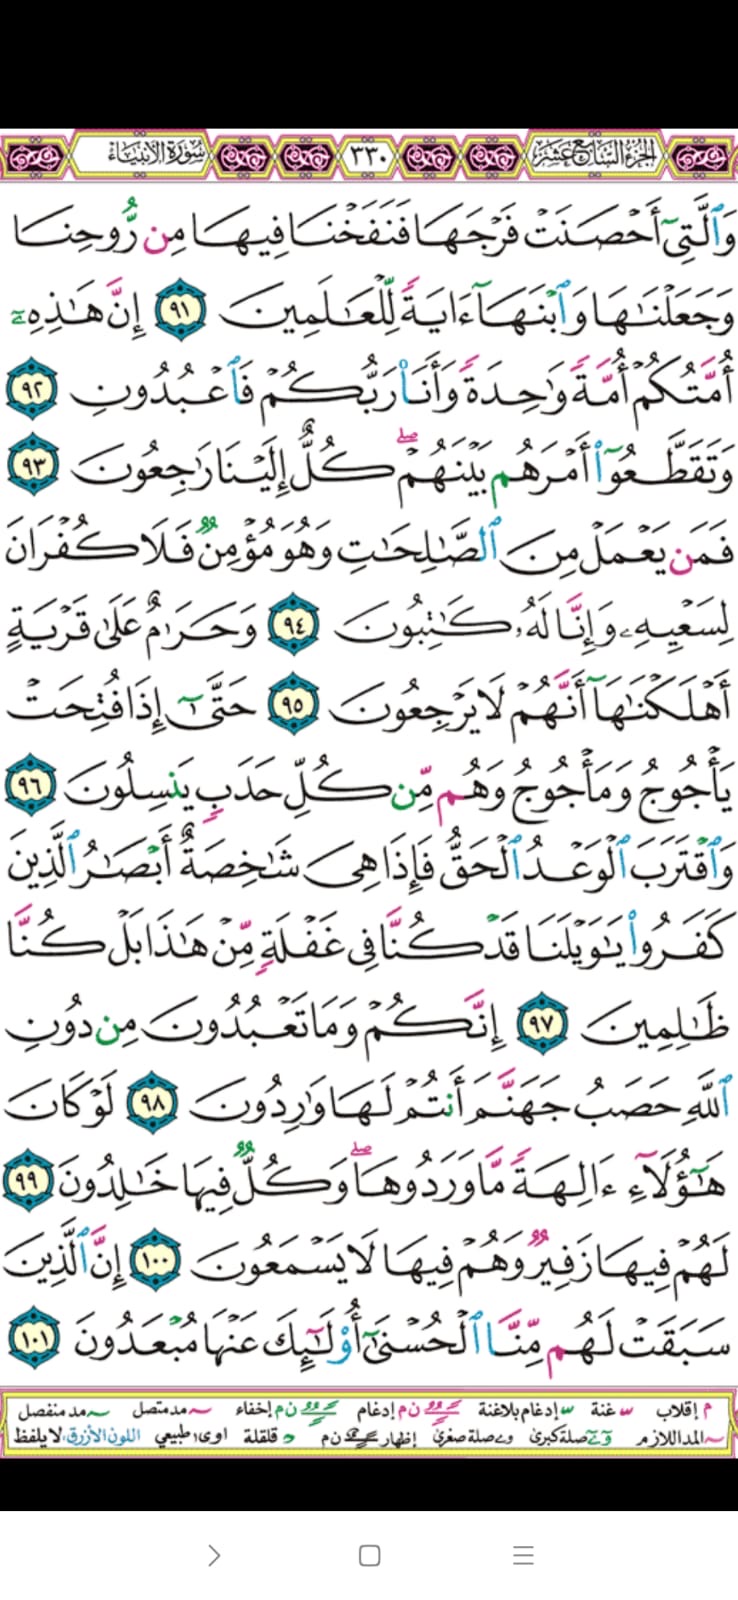 الجزء السابع عشر ٣٣٠ سورة الأنبياء
وَٱلَّتِىٓ أَحْصَنَتْ فَرْجَهَا فَنَفَخْنَا فِيهَا مِن رُّوحِنَا
وَجَعَلْنَـٰهَا وَٱبْنَهَآ ءَايَةً لِّلْعَـٰلَمِينَ ٩١ إِنَّ هَـٰذِهِۦٓ
أُمَّتُكُمْ أُمَّةً وَٰحِدَةً وَأَنَا۠ رَبُّكُمْ فَٱعْبُدُونِ ٩٢
وَتَقَطَّعُوٓا۟ أَمْرَهُم بَيْنَهُمْ ۖ كُلٌّ إِلَيْنَا رَٰجِعُونَ ٩٣
فَمَن يَعْمَلْ مِنَ ٱلصَّـٰلِحَـٰتِ وَهُوَ مُؤْمِنٌ فَلَا كُفْرَانَ
لِسَعْيِهِۦ وَإِنَّا لَهُۥ كَـٰتِبُونَ ٩٤ وَحَرَٰمٌ عَلَىٰ قَرْيَةٍ
أَهْلَكْنَـٰهَآ أَنَّهُمْ لَا يَرْجِعُونَ ٩٥ حَتَّىٰٓ إِذَا فُتِحَتْ
يَأْجُوجُ وَمَأْجُوجُ وَهُم مِّن كُلِّ حَدَبٍ يَنسِلُونَ ٩٦
وَٱقْتَرَبَ ٱلْوَعْدُ ٱلْحَقُّ فَإِذَا هِىَ شَـٰخِصَةٌ أَبْصَـٰرُ ٱلَّذِينَ
كَفَرُوا۟ يَـٰوَيْلَنَا قَدْ كُنَّا فِى غَفْلَةٍ مِّنْ هَـٰذَا بَلْ كُنَّا
ظَـٰلِمِينَ ٩٧ إِنَّكُمْ وَمَا تَعْبُدُونَ مِن دُونِ
ٱللَّهِ حَصَبُ جَهَنَّمَ أَنتُمْ لَهَا وَٰرِدُونَ ٩٨ لَوْ كَانَ
هَـٰٓؤُلَآءِ ءَالِهَةً مَّا وَرَدُوهَا ۖ وَكُلٌّ فِيهَا خَـٰلِدُونَ ٩٩
لَهُمْ فِيهَا زَفِيرٌ وَهُمْ فِيهَا لَا يَسْمَعُونَ ١٠٠ إِنَّ ٱلَّذِينَ
سَبَقَتْ لَهُم مِّنَّا ٱلْحُسْنَىٰٓ أُو۟لَـٰٓئِكَ عَنْهَا مُبْعَدُونَ ١٠١
م إقلاب غنة إدغام بلاغنة ن م إدغام ن م إخفاء مد متصل مد منفصل
المد اللازم صلة كبرى صلة صغرى إظهار ن م قلقلة اوى طبيعي اللون الأزرق: لا يلفظ